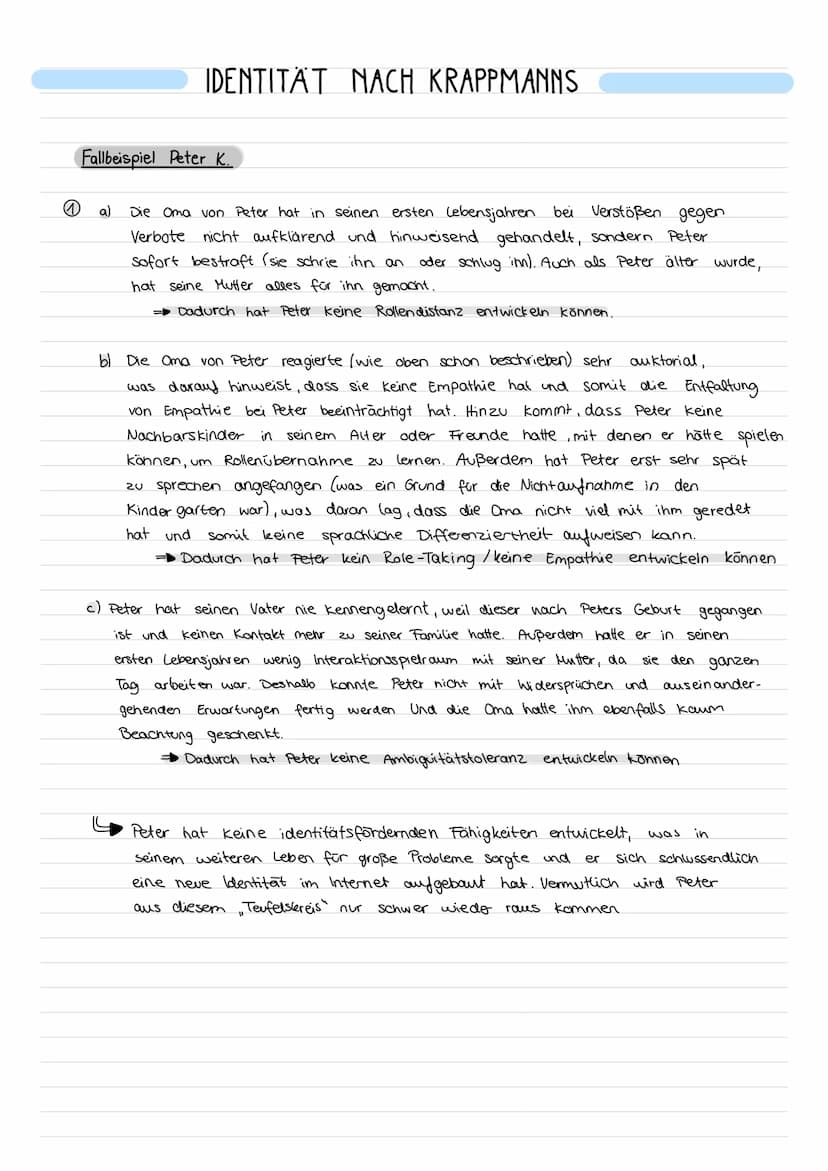 IDENTITÄT NACH KRAPPMANNS
Fallbeispiel Peter K.
① a) Die Oma von Peter hat in seinen ersten Lebensjahren bei Verstößen gegen
Verbote nicht aufklärend und hinweisend gehandelt, sondern Peter
sofort bestraft (sie schrie ihn an oder schlug ihn). Auch als Peter älter wurde,
hat seine Mutter alles für ihn gemacht.
⇒ Dadurch hat Peter keine Rollendistanz entwickeln können.
b) Die Oma von Peter reagierte (wie oben schon beschrieben) sehr auktorial,
was darauf hinweist, dass sie keine Empathie hat und somit die Entfaltung
von Empathie bei Peter beeinträchtigt hat. Hinzu kommt, dass Peter keine
Nachbarskinder in seinem Alter oder Freunde hatte, mit denen er hätte spielen
können, um Rollenübernahme zu lernen. Außerdem hat Peter erst sehr spät
zu sprechen angefangen (was ein Grund für die Nichtaufnahme in den
Kindergarten war), was daran lag, dass die Oma nicht viel mit ihm geredet
hat und somit keine sprachliche Differenziertheit aufweisen kann.
⇒ Dadurch hat Peter kein Role-Taking / keine Empathie entwickeln können
c) Peter hat seinen Vater nie kennengelernt, weil dieser nach Peters Geburt gegangen
ist und keinen Kontakt mehr zu seiner Familie hatte. Außerdem hatte er in seinen
ersten Lebensjahren wenig Interaktionsspielraum mit seiner Mutter, da sie den ganzen
Tag arbeiten war. Deshalb konnte Peter nicht mit Widersprüchen und auseinander-
gehenden Erwartungen fertig werden Und die Oma hatte ihm ebenfalls kaum
Beachtung geschenkt.
⇒ Dadurch hat Peter keine Ambiguitätstoleranz entwickeln können
↳ Peter hat keine identitätsfördernden Fähigkeiten entwickelt, was in
seinem weiteren Leben für große Probleme sorgte und er sich schlussendlich
eine neue Identität im Internet aufgebaut hat. Vermutlich wird Peter
aus diesem „Teufelskreis“ nur schwer wieder raus kommen